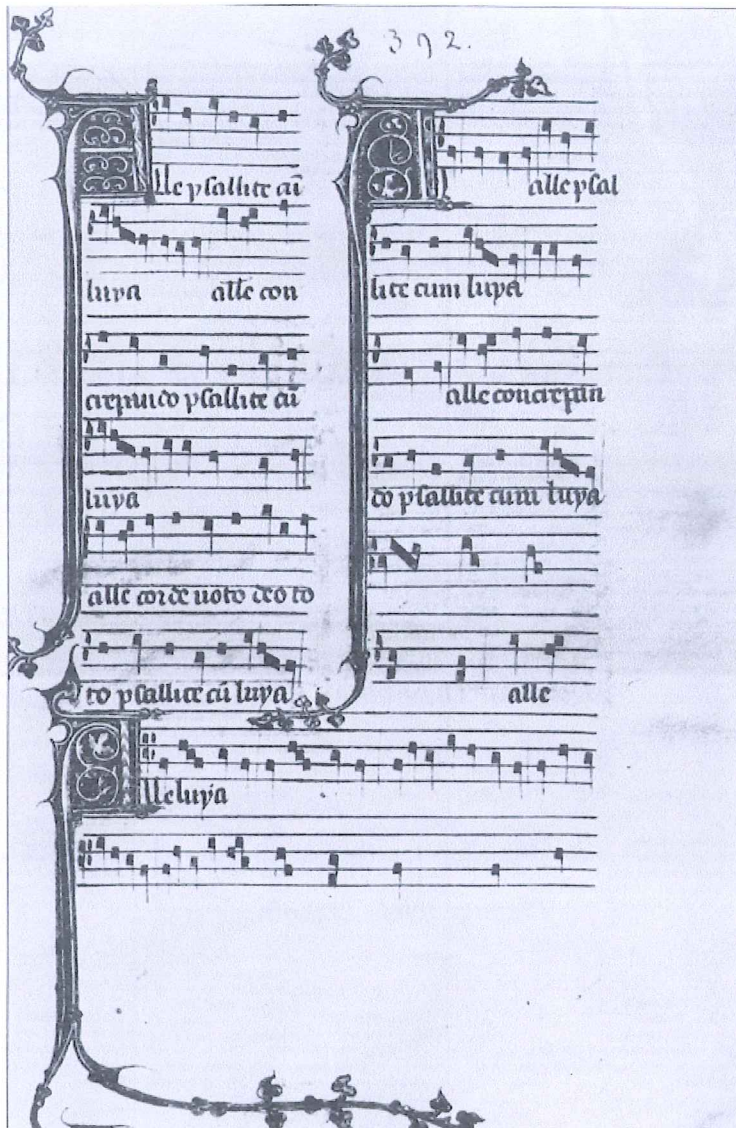 392.
lle psallite cū
luya alle con
crepando psallite cū
luya
alle corde uoto deo to
to psallite cū luya
alle psal
lite cum luya
alle concrepan
do psallite cum luya
alle
lleluya